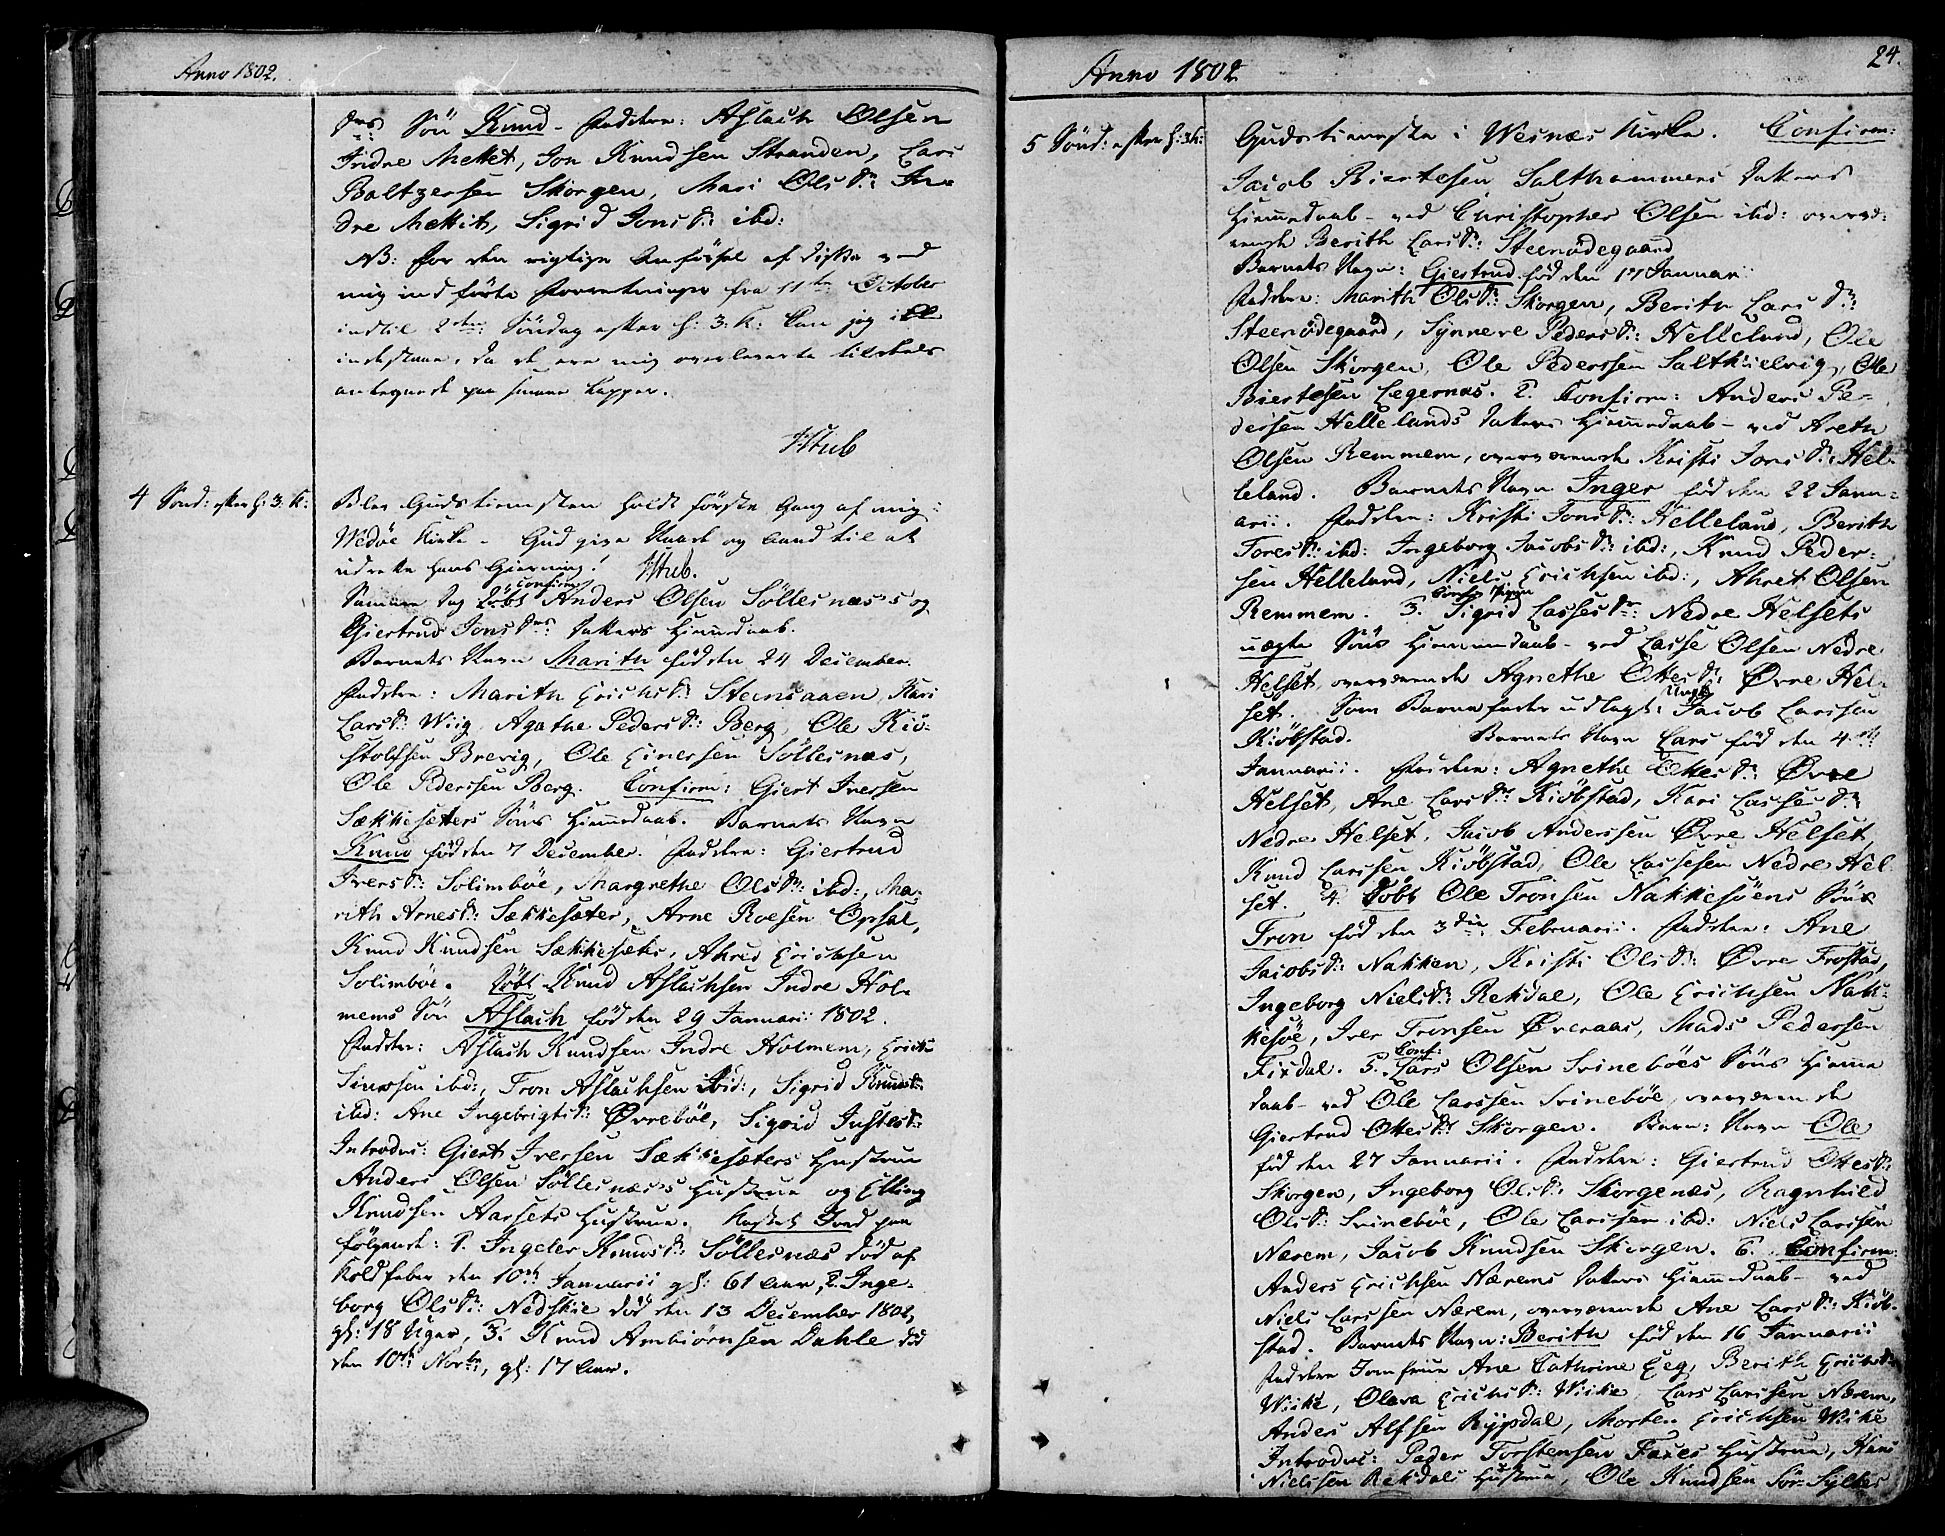 Anno 1802.
Søn Knud - Faddere: Aslach Olsen
Indre Mettet, Jon Knudsen Stranden, Lars
Baltzersen Skorgen, Mari Ols Dr: In-
dre Mettets, Sigrid Jons Dr: ibd:
NB: for den rigtige Anførsel af disse ved
mig indførte Forretninger fra 11te October
indtil 2den Søndag efter H: 3: K: kan jeg ikke
indestaae, da de ere mig overleverte
antegnede paa smaae Lapper.
HStub
4 Sønd: efter H: 3: K:
Blev Gudstienesten holdt første Gang af mig i
Wedøe Kirke - Gud give Naade og Aand til at
udrette hans Gierning! HStub.
Confirm:
Samme Dag Døbt Anders Olsen Søllesnæs's og
Giertrud Jons Drs Datters Hiemedaab.
Barnets Navn Marith fød den 24 December.
Faddere: Marith Erichs Dr: Steensaaen, Kari
Lars Dr: Wiig, Agathe Peders Dr: Berg, Ole Kiø-
stolfsen Brevig, Ole Einersen Søllesnæs,
Ole Pederssen Berg. Confirm: Giert Iversen
Sækkesæters Søns Hiemedaab. Barnets Navn
Knud fød den 7 December. Faddere: Giertrud
Ivers Dr: Solimbøe, Margrethe Ols Dr: ibd:, Ma-
rith Arnes Dr: Sækkesæter, Arne Roesen Opsal,
Knud Knudsen Sækkesæter, Ahred Erichsen
Solimbøe. Døbt Knud Aslachsen Indre Hol-
mems Søn Aslach fød den 29 Januarii 1802.
Faddere: Aslach Knudsen Indre Holmem, Erich
Siversen ibd:, Tron Aslachsen ibid:, Sigrid Knuds Dr:
ibd: Ane Ingebrigts Dr: Øvrebøe, Sigrid Justes Dr:
Introdus: Giert Iversen Sækkesæters Hustrue
Anders Olsen Søllesnæs's Hustrue og Elling
Knudsen Aarsets Hustrue. Kastet Jord paa
følgende: 1. Ingeler Knuds Dr: Søllesnæs død af
Koldfeber den 10de Januarii gl: 61 Aar, 2. Inge-
borg Ols Dr: Nedskie død den 13 December 1802,
gl: 18 Uger, 3. Knud Ambiørnsen Dahle død
den 10de Novbr, gl: 17 Aar.
24.
Anno 1802
5 Sønd: efter H: 3 K:
Gudstieneste i Wesnæs Kirke. Confirm:
Jacob Biertesen Salthammers Datters
Hiemedaab - ved Christopher Olsen ibd: overvæ-
rende Berith Lars Dr: Steenødegaard
Barnets Navn: Giertrud fød den 17 Januar:
Faddere: Marith Ols Dr: Skorgen, Berith Lars Dr:
Steenødegaard, Synneve Peders Dr: Helleland, Ole
Olsen Skorgen, Ole Pederssen Saltkielvig, Ole
Biertesen Legernæs. 2. Confirm: Anders Pe-
dersen Hellelands Datters Hiemedaab - ved Areth
Olsen Remmem, overværende Kristi Jons Dr: Hel-
leland. Barnets Navn Inger fød den 22 Janu-
arii. Faddere: Kristi Jons Dr: Helleland, Berith
Tores Dr: ibd: Ingeborg Jacobs Dr: ibd:, Knud Peder-
sen Helleland, Niels Erichsen ibd:, Ahret Olsen
Remmem. 3. Sigrid Lasses Dr: Nedre Helsets
uægte Søns Hiemmedaab - ved Lasse Olsen Nedre
Helset, overværende Agnethe Ottes Dr: Øvre Hel-
set. Som Barnefader udlagt: Ungk: Jacob Larssen
Kiøbstad. Barnets Navn Lars fød den 4de
Januarii. Faddere: Agnethe Ottes Dr: Øvre
Helset, Ane Lars Dr: Kiøbstad, Kari Lasses Dr:
Nedre Helset, Jacob Anderssen Øvre Helset,
Knud Larssen Kiøbstad, Ole Lassesen Nedre Hel-
set. 4. Døbt Ole Tronsen Nakkesøens Søn
Tron fød den 3die Februarii. Faddere: Ane
Jacobs Dr: Nakken, Kristi Ols Dr: Øvre Frostad,
Ingeborg Niels Dr: Rekdal, Ole Erichsen Nak-
kesøe, Iver Tronsen Øveraas, Mads Pedersen
Fixdal. 5. Conf: Lars Olsen Svinebøes Søns Hieme
daab - ved Ole Larssen Svinebøe, overværende
Giertrud Ottes Dr: Skorgen. Barn: Navn Ole
fød den 27 Januarii. Faddere: Giertrud Ottes Dr:
Skorgen, Ingeborg Ols Dr: Skorgenæs, Ragnhild
Ols Dr: Svinebøe, Ole Larssen ibd: Niels Larssen
Nærem, Jacob Knudsen Skorgen. 6. Confirm:
Anders Erichsen Nærems Datters Hiemedaab - ved
Niels Larssen Nærem, overværende Ane Lars Dr: Kiøb-
stad. Barnets Navn: Berith fød den 16 Januarii
Faddere Jomfrue Ane Cathrine Eeg, Berith Erichs Dr:
Wiike, Olava Erichs Dr: Wiike, Lars Larssen Nærem,
Anders Alfsen Rypdal, Morten Erichsen Wike
Introdus: Peder Torstensen Fares Hustrue, Hans
Nielssen Rekdals Hustrue, Ole Knudsen Sør-Syltes